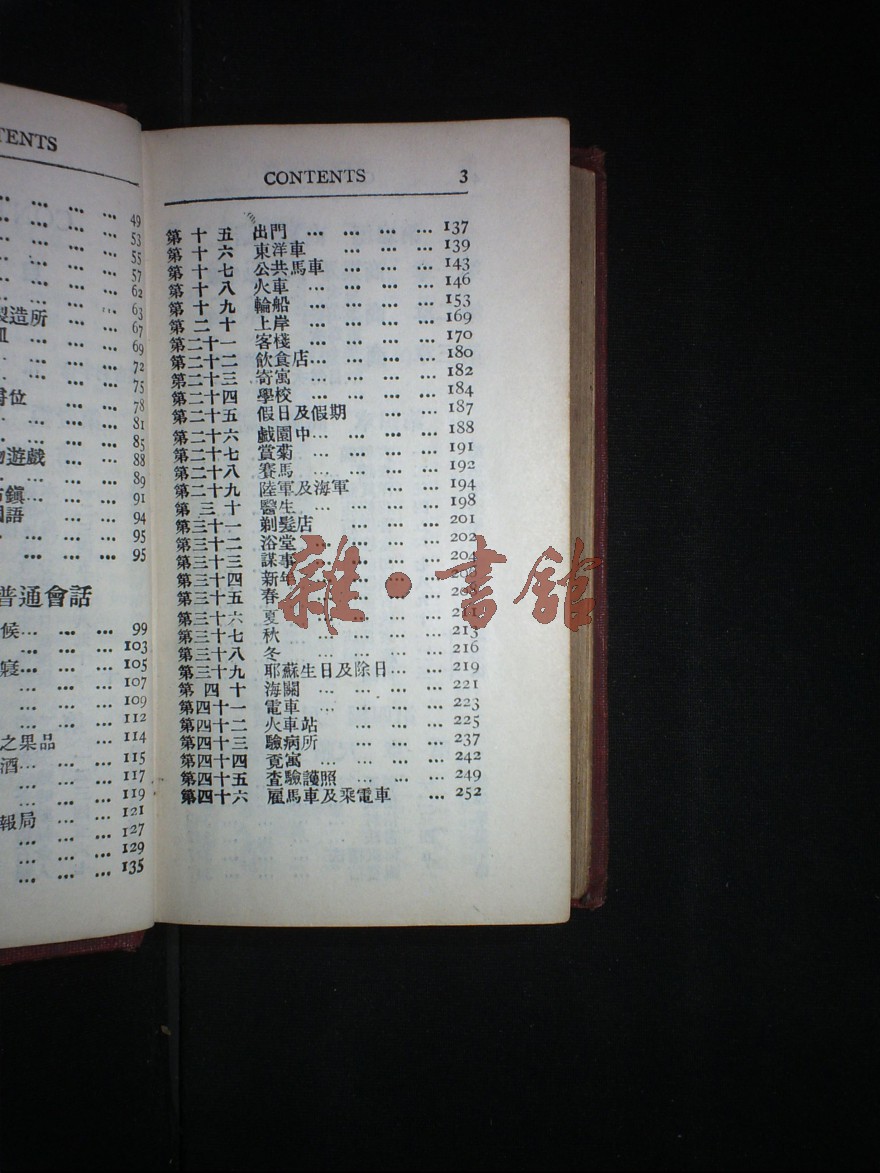 TENTS
... ... ... ... 49
... ... ... ... 53
... ... ... ... 55
... ... ... ... 57
... ... ... ... 62
製造所 ... ... 63
... ... ... 67
... ... ... 69
... ... ... 72
... ... ... 75
位 ... ... ... 78
... ... ... ... 81
... ... ... ... 85
物遊戲 ... ... ... 88
... ... ... ... 89
鎮... ... ... 91
語 ... ... 94
... ... ... ... 95
... ... ... ... 95
普通會話
候... ... ... 99
... ... ... 103
寢... ... ... 105
... ... ... 107
... ... ... 109
... ... ... 112
之果品 ... 114
酒... ... ... 115
... ... ... 117
... ... ... 119
報局 ... ... 121
... ... ... 127
... ... ... 129
... ... ... 135
CONTENTS 3
第十五 出門 ... ... ... ... 137
第十六 東洋車 ... ... ... 139
第十七 公共馬車 ... ... ... 143
第十八 火車 ... ... ... ... 146
第十九 輪船 ... ... ... ... 153
第二十 上岸 ... ... ... ... 169
第二十一 客棧 ... ... ... ... 170
第二十二 飲食店... ... ... ... 180
第二十三 寄寓 ... ... ... ... 182
第二十四 學校 ... ... ... ... 184
第二十五 假日及假期 ... ... 187
第二十六 戲園中... ... ... ... 188
第二十七 賞菊 ... ... ... ... 191
第二十八 賽馬 ... ... ... ... 192
第二十九 陸軍及海軍 ... ... 194
第三十 醫生 ... ... ... ... 198
第三十一 剃髮店 ... ... ... 201
第三十二 浴堂 ... ... ... ... 202
第三十三 謀事 ... 204
第三十四 新年
第三十五 春
第三十六 夏
第三十七 秋 ... ... ... ... 213
第三十八 冬 ... ... ... ... 216
第三十九 耶蘇生日及除日... ... ... 219
第四十 海關 ... ... ... ... 221
第四十一 電車 ... ... ... ... 223
第四十二 火車站 ... ... ... 225
第四十三 驗病所 ... ... ... 237
第四十四 覔寓 ... ... ... ... 242
第四十五 查驗護照 ... ... ... 249
第四十六 雇馬車及乘電車 ... 252
雜·書館